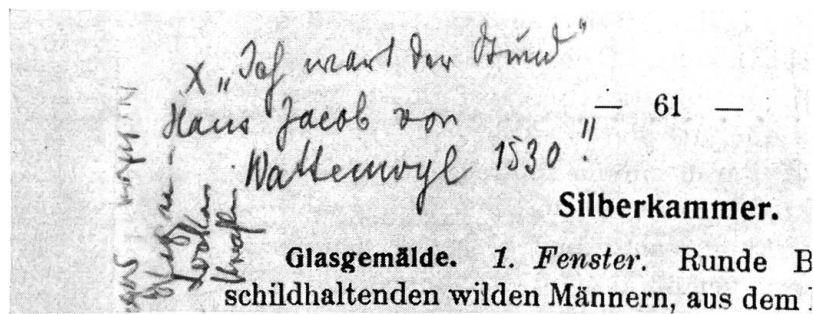 x „Ich wart der Stund“
Hans Jacob von
Wattenwyl 1530!!
— 61 —
Silberkammer.
Glasgemälde. 1. Fenster. Runde B
schildhaltenden wilden Männern, aus dem